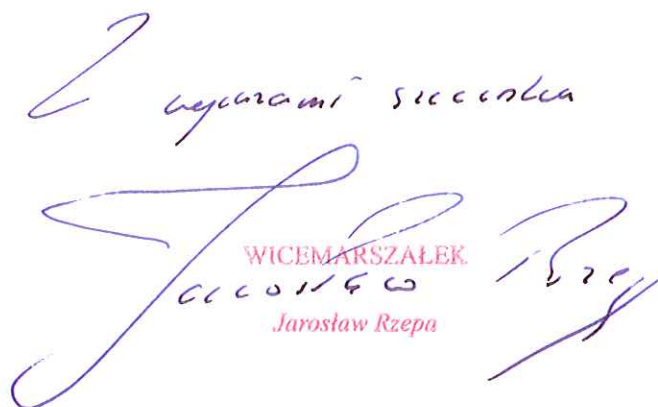 Z wyrazami szacunku
WICEMARSZAŁEK
Jarosław Rzepa
Jarosław Rzepa